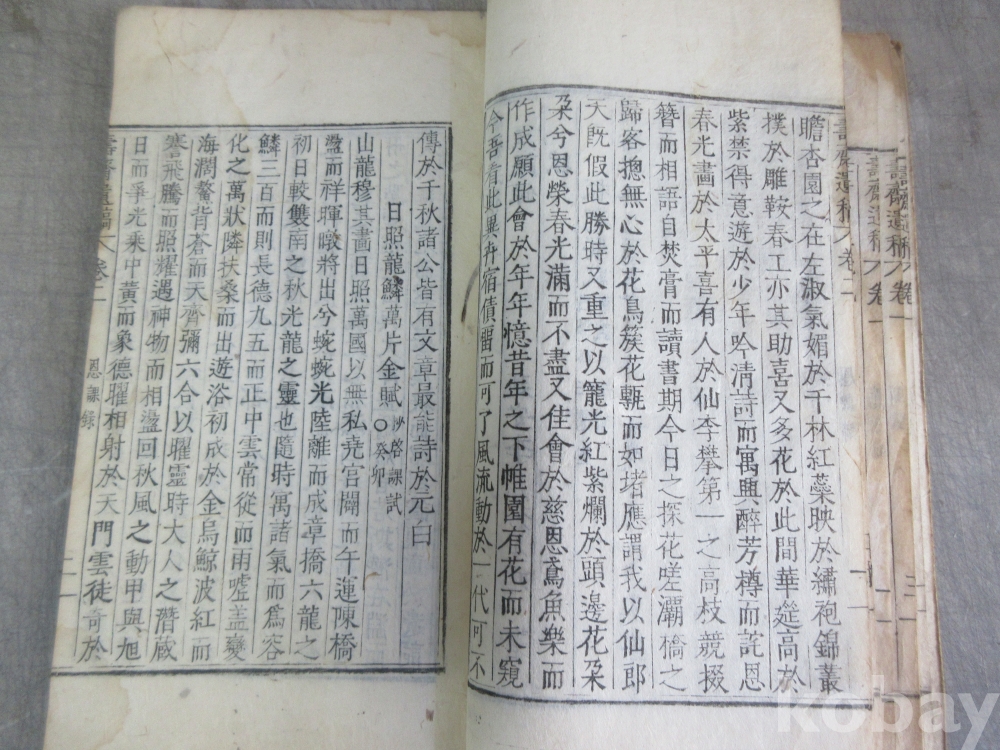 瞻杏園之在左淑氣媚於千林紅蘂映於繡袍錦叢
撲於雕鞍春工亦其助喜又多花於此間華筵高於
紫禁得意遊於少年吟清詩而寓興醉芳樽而詫恩
春光畵於太平喜有人於仙李攀第一之高枝競掇
簪而相語自焚膏而讀書期今日之探花嗟灞橋之
歸客摠無心於花鳥簇花氍而如堵應謂我以仙郎
天旣假此勝時又重之以寵光紅紫爛於頭邊花朶
朶兮恩榮春光滿而不盡又佳會於慈恩鳶魚樂而
作成願此會於年年憶昔年之下帷園有花而未窺
今吾看此異卉宿債酬而可了風流動於一代可不
傳於千秋諸公皆有文章最能詩於元白
日照龍鱗萬片金賦 抄啓課試 ○癸卯
山龍穆其畵日照萬國以無私堯宮闢而午運陳橋
盪而祥暉暾將出兮蜿蜿光陸離而成章擣六龍之
初日較雙南之秋光龍之靈也隨時寓諸氣而爲容
鱗三百而則長德九五而正中雲常從而雨噓盖變
化之萬狀隣扶桑而出遊浴初成於金烏鯨波紅而
海濶鰲背蒼而天齊彌六合以曜靈時大人之潛藏
騫飛騰而照耀遇神物而相盪回秋風之動甲與旭
日而爭光乘中黃而象德曜相射於天門雲徒奇於
卷二
恩課錄
卷一
卷一